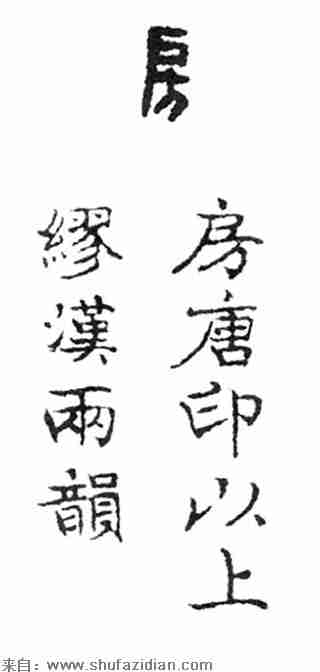 房
房唐印以上
繆漢兩韻
来自：www.shufazidian.com